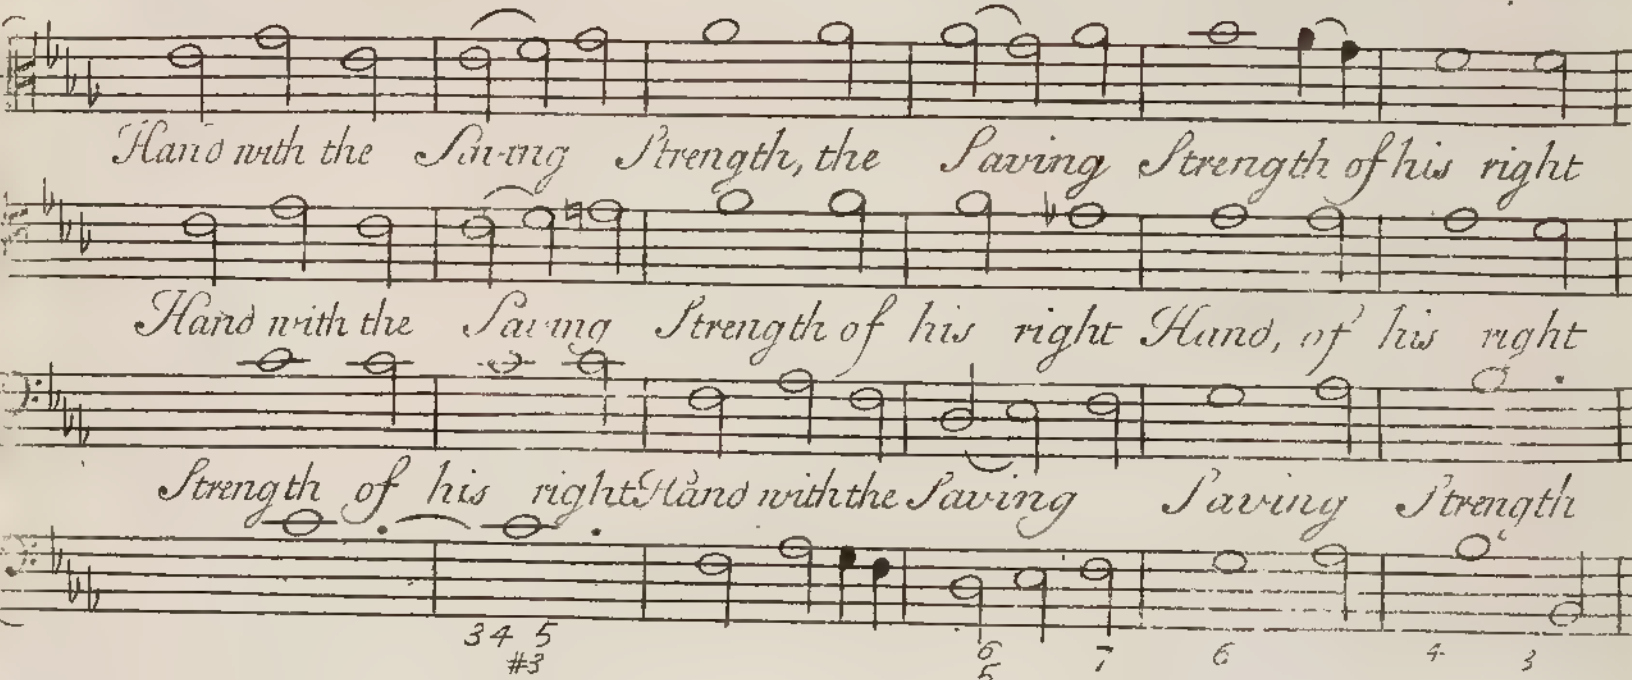 Hand with the Saving Strength, the Saving Strength of his right
Hand with the Saving Strength of his right Hand, of his right
Strength of his right Hand with the Saving Saving Strength
3 4 5 6 7 6 4 3
#3 5